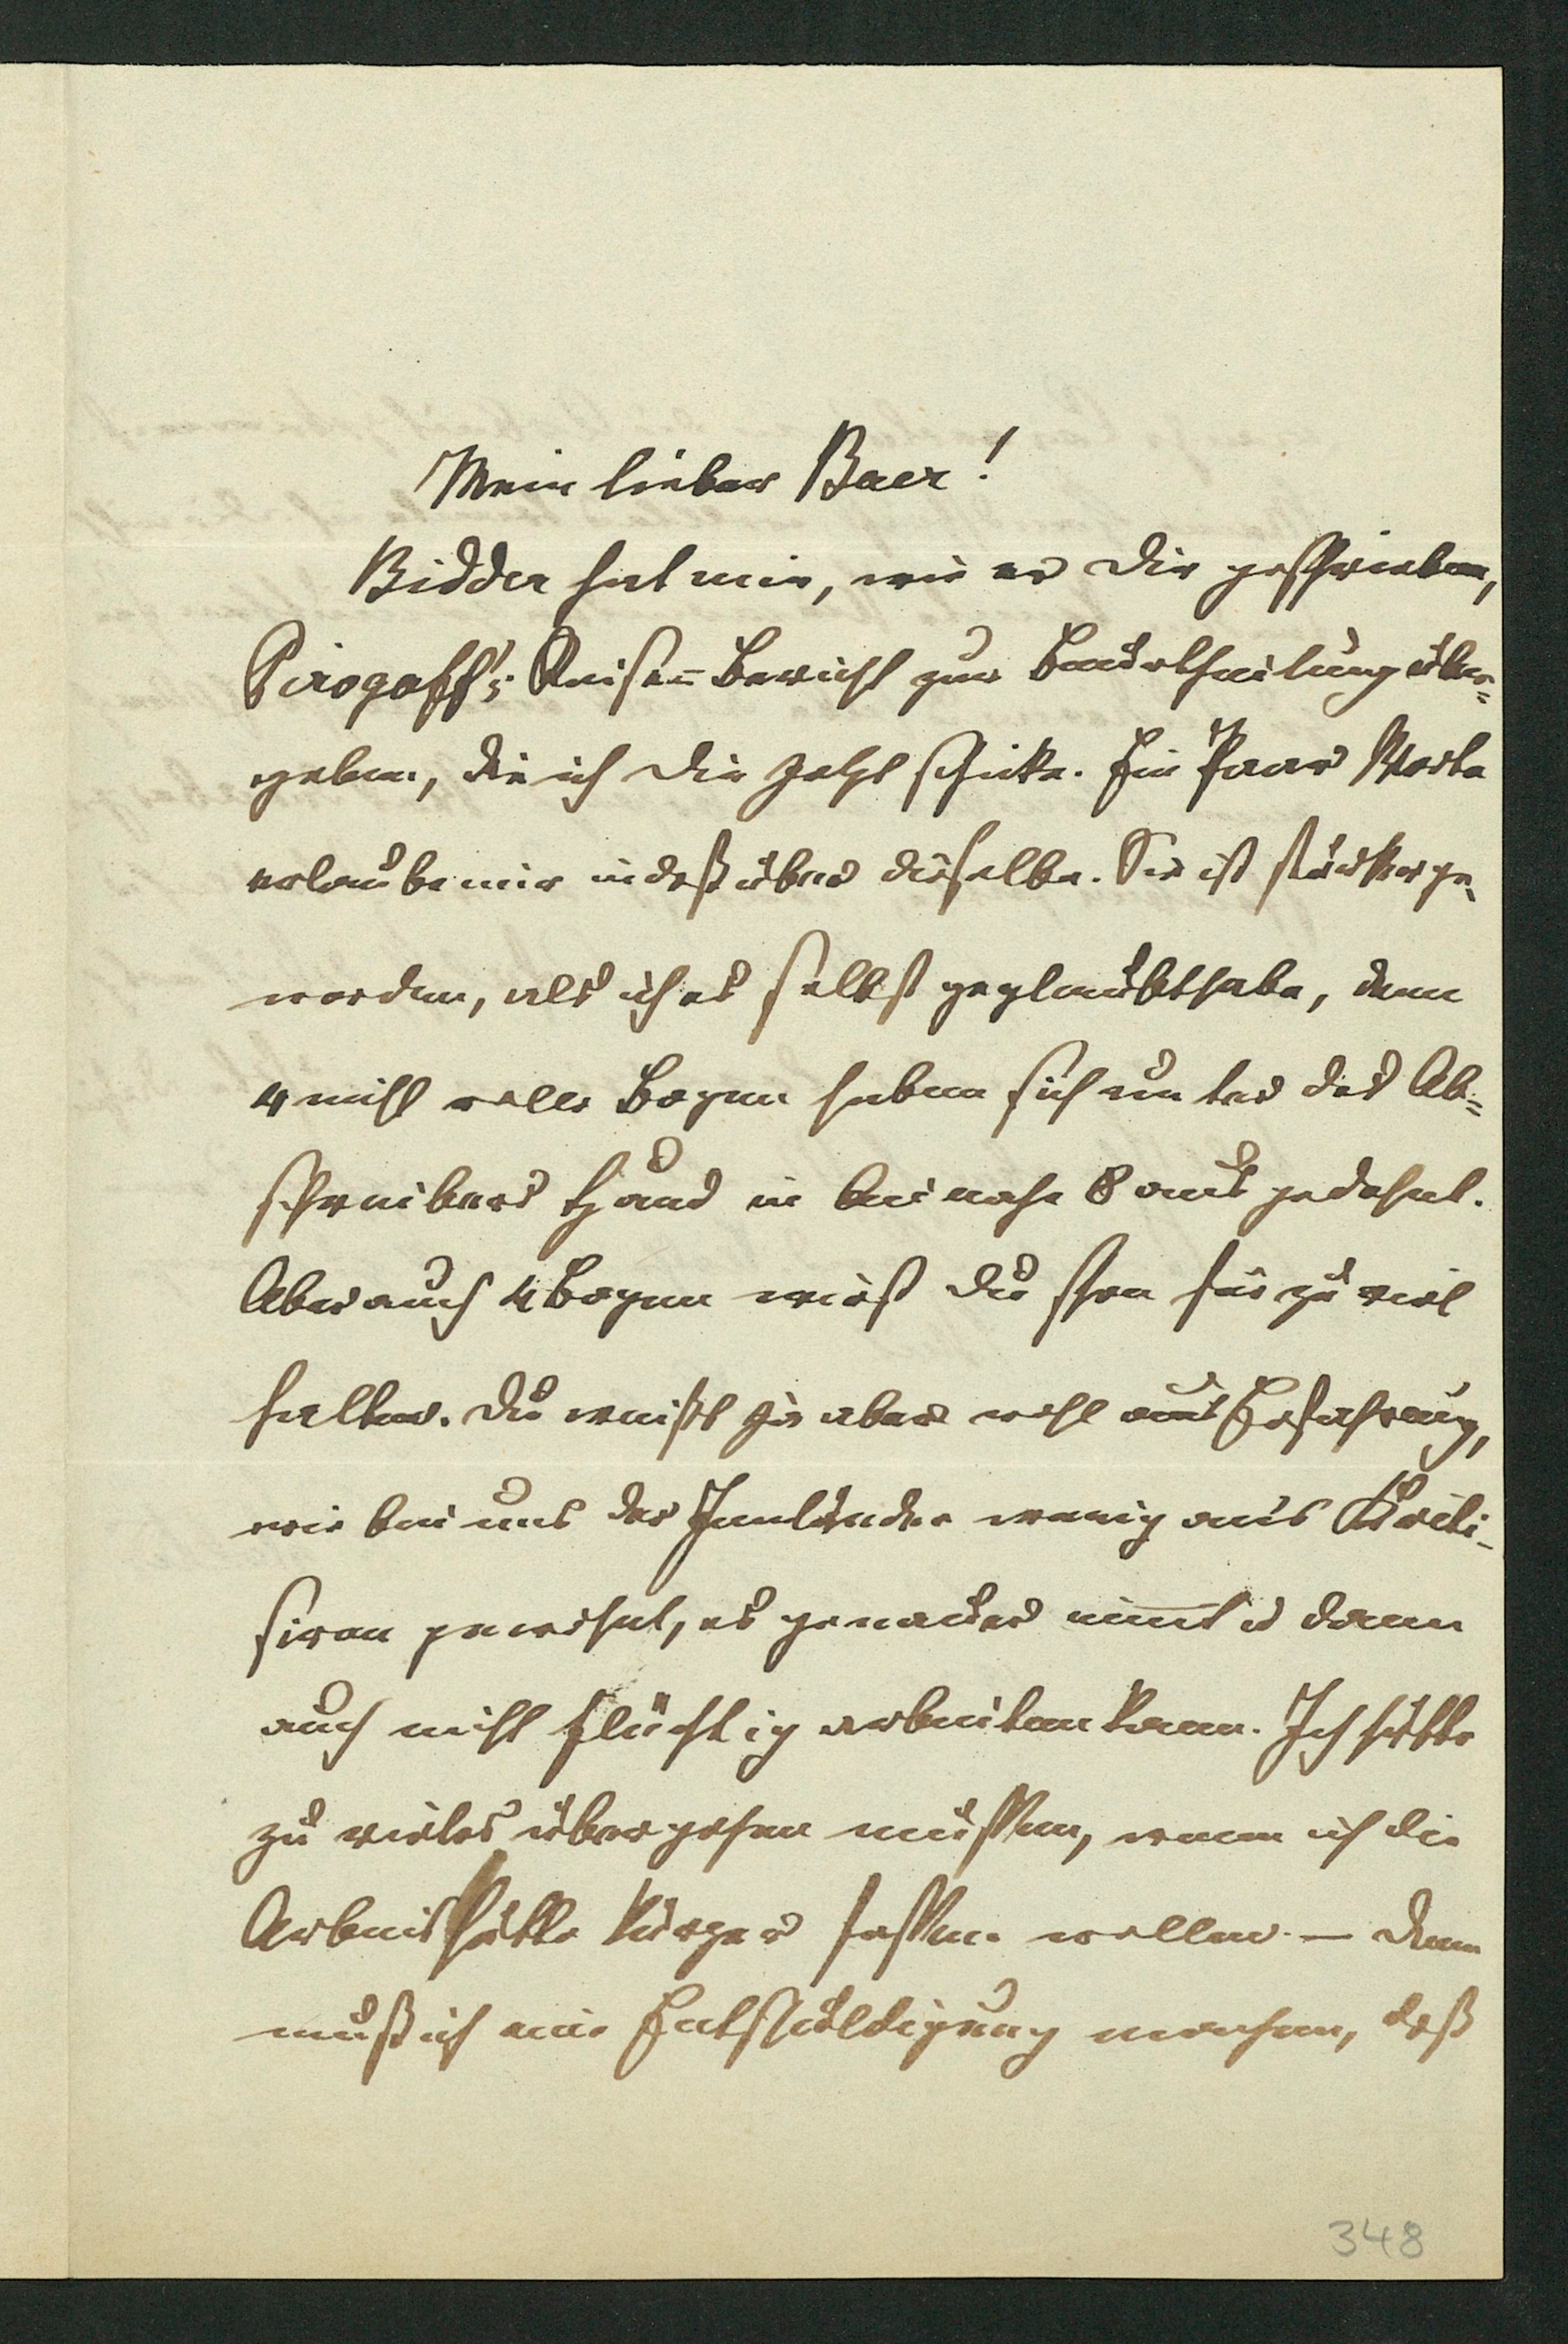 Mein lieber Baer!
Bidder hat mir, wie er Dir geschrieben,
Pirogoff's Reise=Bericht zur Beurtheilung über=
geben, die ich Dir jetzt schicke. Ein Paar Worte
erlaube mir indeß über dieselbe. Sie ist stärker ge-
worden, als ich es selbst geglaubt habe, denn
4 nicht volle Bogen haben sich unter des Ab=
schreibers Hand in beinahe 8 ausgedehnt.
Aber auch 4 Bogen wirst Du schon für zu viel
halten. Du weißt ja aber wohl aus Erfahrung,
wie bei uns der Inländer wenig an's Kriti-
siren gewöhnt, es genauer nim̅t u dann
auch nicht flüchtig arbeiten kann. Ich hätte
zu vieles übergehen müssen, wenn ich die
Arbeit hätte kürzer fassen wollen. — Dann
muß ich eine Entschuldigung machen, daß
348